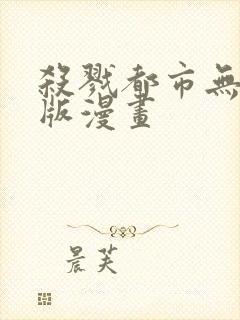 殺戮都市無
版漫畫
晨芙